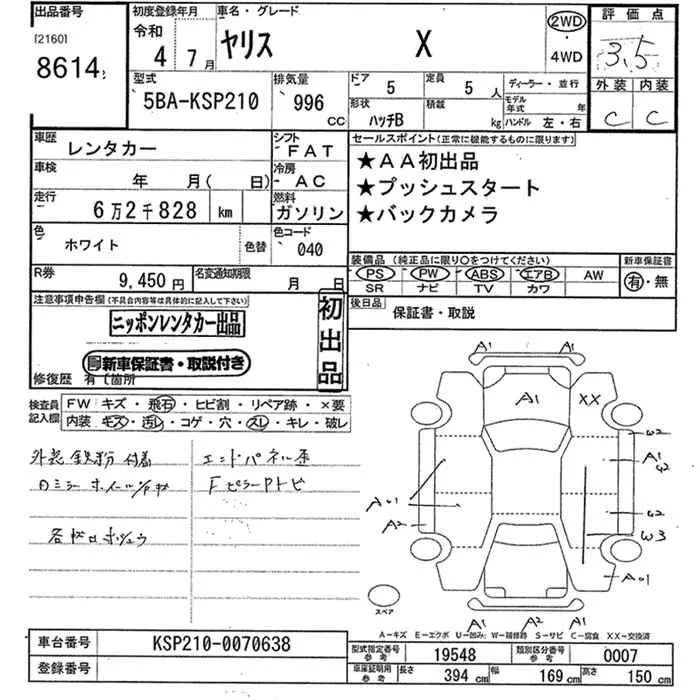 出品番号 初度登録年月 車名・グレード 評価点
[2160] 令和 2WD
8614 4 7月 ヤリス X ・ 3.5
4WD
型式 排気量 ドア 5 定員 5人 ディーラー・並行 外装 内装
5BA-KSP210 996 CC 形状 ハッチB 積載 kg モデル年式 年 C C
ハンドル 左・右
車歴 レンタカー シフト FAT セールスポイント(正常に機能するものに限ります)
車検 年 月( 日) 冷房 AC ★AA初出品
走行 6万2千828 km 燃料 ガソリン ★プッシュスタート
★バックカメラ
色 ホワイト 色替 色コード 040
装備品(純正品に限り○をつけてください) 新車保証書
R券 9,450円 名変通知期限 月 日 PS PW ABS エアB AW 有・無
SR ナビ TV カワ
注意事項申告欄(不具合内容等は具体的に記入して下さい) 初出品 後日品 保証書・取説
ニッポンレンタカー出品
新車保証書・取説付き
修復歴 有 箇所
検査員記入欄 FW キズ・飛石・ヒビ割・リペア跡・×要
内装 キズ・汚レ・コゲ・穴・スレ・キレ・破レ
外装 鉄粉 付着 エンドパネル歪
Fピラー
A1 A1
A1 XX
W2
A1
A2
W3
スペア
A1 A2 A1
A-キズ E-エクボ U-凹み W-補修跡 S-サビ C-腐食 XX-交換済
車台番号 KSP210-0070638
登録番号
型式指定番号 参考 19548 類別区分番号 参考 0007
車庫証明用 参考 長さ 394 cm 幅 169 cm 高さ 150 cm